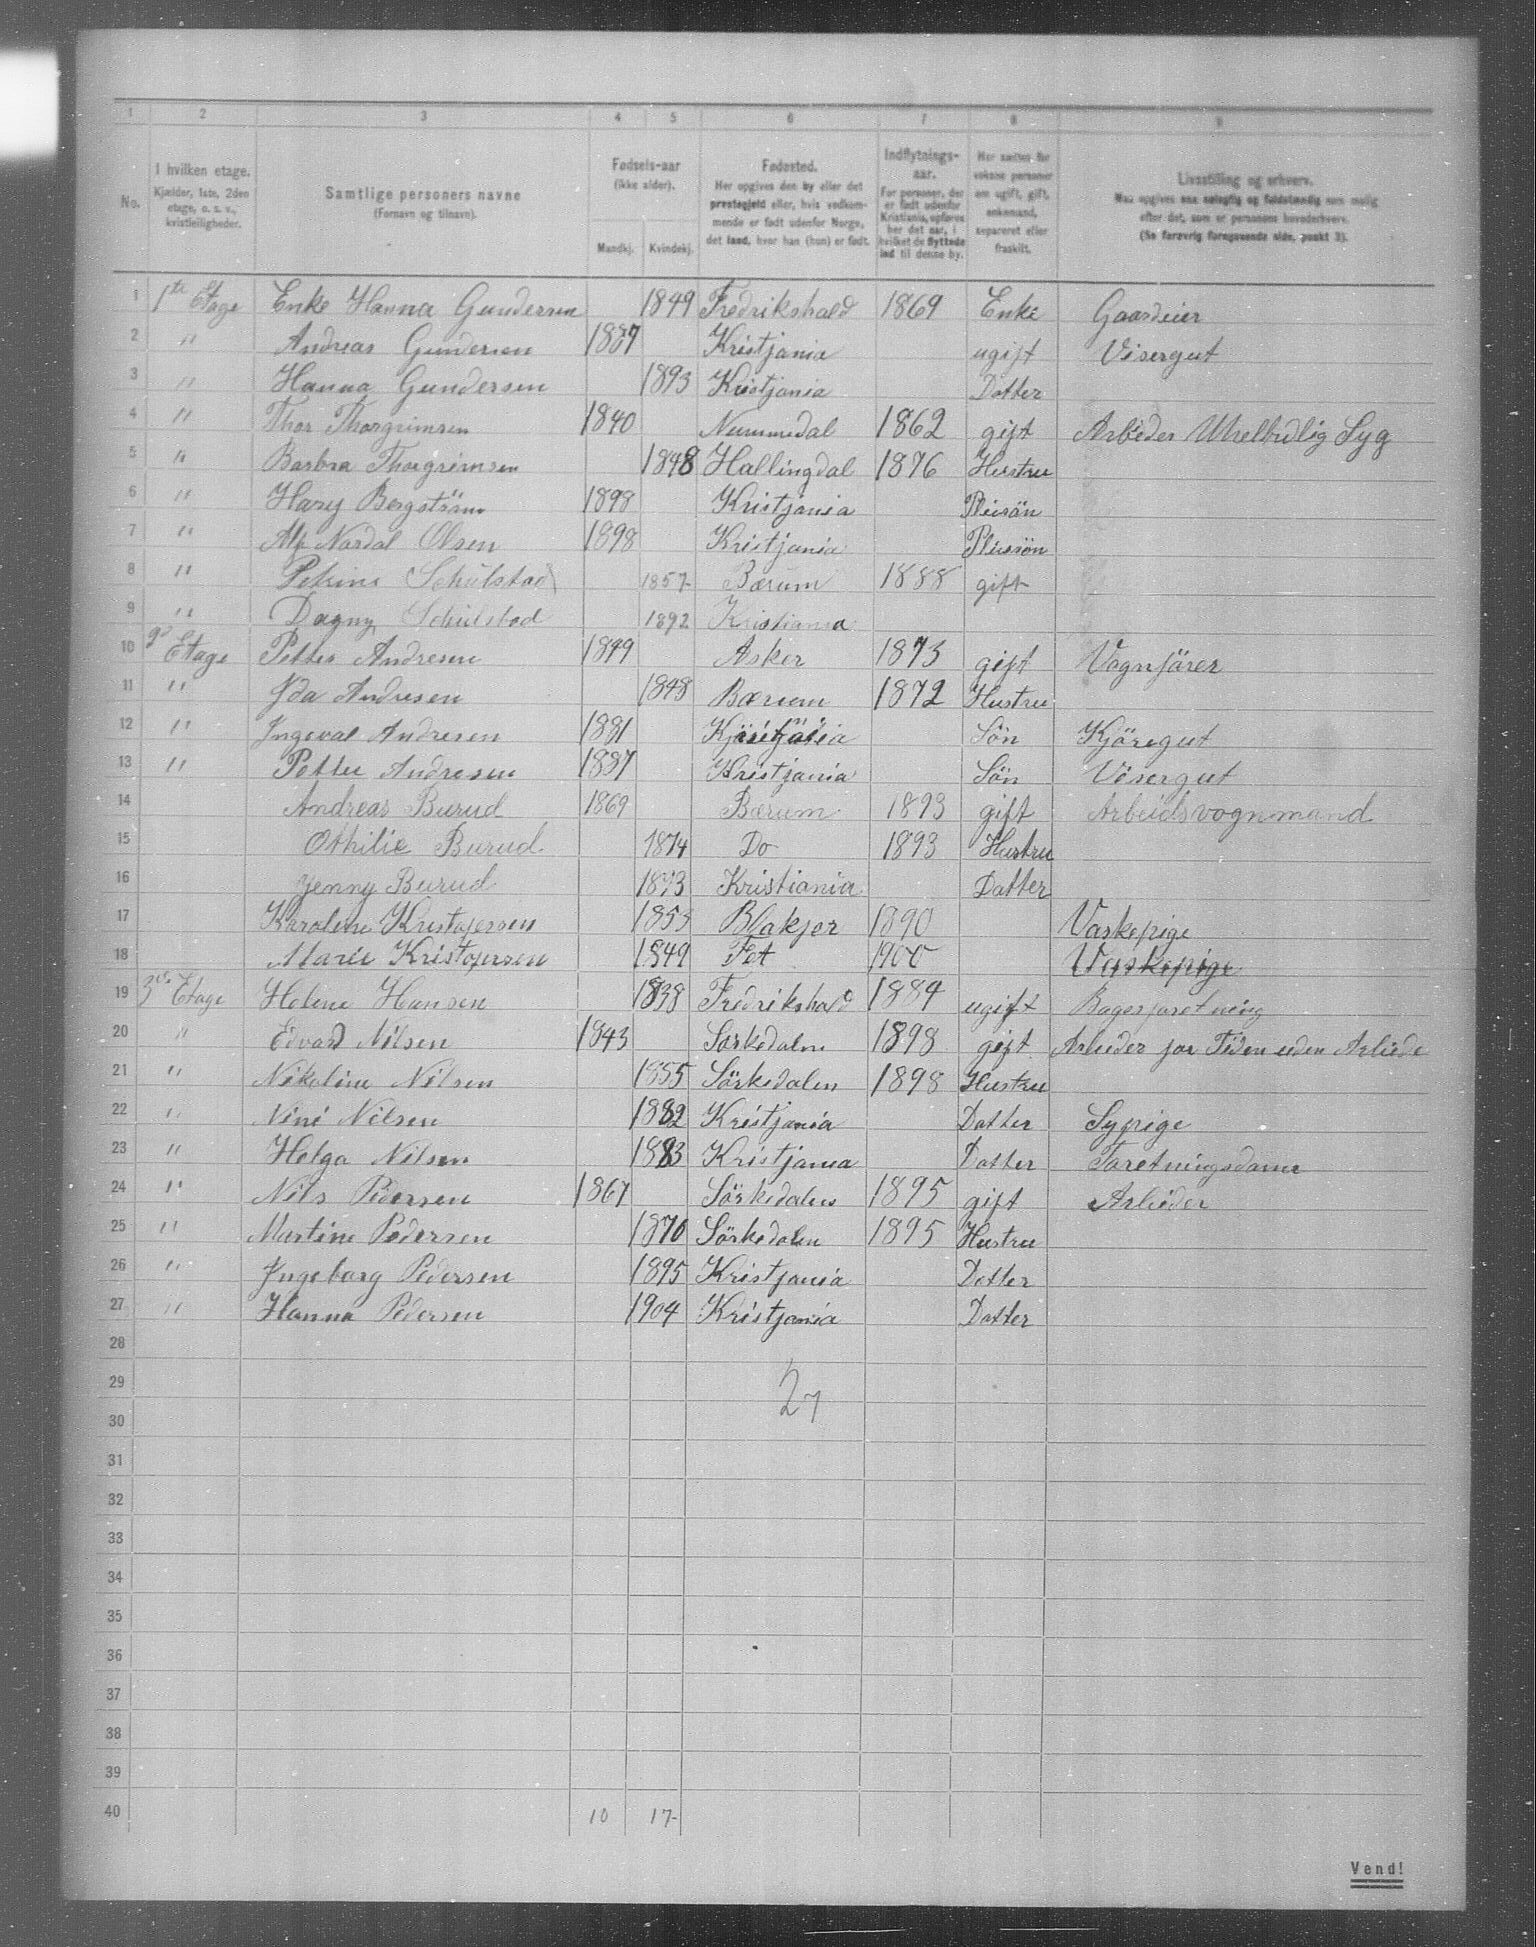 1 2 3 4 5 6 7 8 9
No. I hvilken etage. Kjælder, 1ste, 2den etage, o. s. v., kvistleiligheder. Samtlige personers navne (Fornavn og tilnavn). Fødsels-aar (ikke alder). Mandkj. Kvindekj. Fødested. Her opgives den by eller det prestegjeld eller, hvis vedkommende er født udenfor Norge, det land, hvor han (hun) er født. Indflytnings-aar. For personer, der er født udenfor Kristiania, opføres her det aar, i hvilket de flyttede ind til denne by. Her sættes for voksne personer om ugift, gift, enkemand, separeret eller fraskilt. Livsstilling og erhverv. Maa opgives saa nøiagtig og fuldstændig som mulig efter det, som er personens hovederhverv. (Se forøvrig foregaaende side, punkt 3).
1 1te Etage Enke Hanna Gundersen 1849 Fredrikshald 1869 Enke Gaardeier
2 " Andreas Gundersen 1887 Kristjania ugift Visergut
3 " Hanna Gundersen 1893 Kristjania Datter
4 " Thor Thorgrimsen 1840 Nummedal 1862 gift Arbeder Uhelbidlig Syg
5 " Barbra Thorgrimsen 1848 Hallingdal 1876 Hustru
6 " Hary Bergström 1898 Kristjania Pleisön
7 " Alf Nordal Olsen 1898 Kristjania Pleisön
8 " Petrine Schülstad 1857 Bærum 1888 gift
9 " Dagny Schülstad 1892 Kristiania
10 2d Etage Petter Andresen 1849 Asker 1873 gift Vognfører
11 " Ida Andresen 1848 Bærum 1872 Hustru
12 " Ingeval Andresen 1881 Kjristjania Sön Kjöregut
13 " Petter Andresen 1887 Kristjania Sön Visergut
14 Andreas Burud 1869 Bærum 1893 gift Arbeidsvognmand
15 Othilie Burud 1874 Do 1893 Hustru
16 Jenny Burud 1893 Kristiania Datter
17 Karoline Kristofersen 1853 Blakjer 1890 Vaskepige
18 Marie Kristofersen 1849 Fet 1900 Vaskepige
19 3die Etage Helene Hansen 1838 Fredrikshald 1884 ugift Bagerforetning
20 " Edvard Nilsen 1843 Sørkedalen 1898 gift Arbeder for Tiden uden Arbede
21 " Nikoline Nilsen 1855 Sörkedalen 1898 Hustru
22 " Nini Nilsen 1882 Kristjania Datter Sypige
23 " Helga Nilsen 1883 Kristjania Datter Foretningsdame
24 " Nils Pedersen 1867 Sörkedalen 1895 gift Arbeder
25 " Martine Pedersen 1870 Sörkedalen 1895 Hustru
26 " Ingeborg Pedersen 1895 Kristjania Datter
27 " Hanna Pedersen 1904 Kristjania Datter
28
29 27
30
31
32
33
34
35
36
37
38
39
40 10 17
Vend!